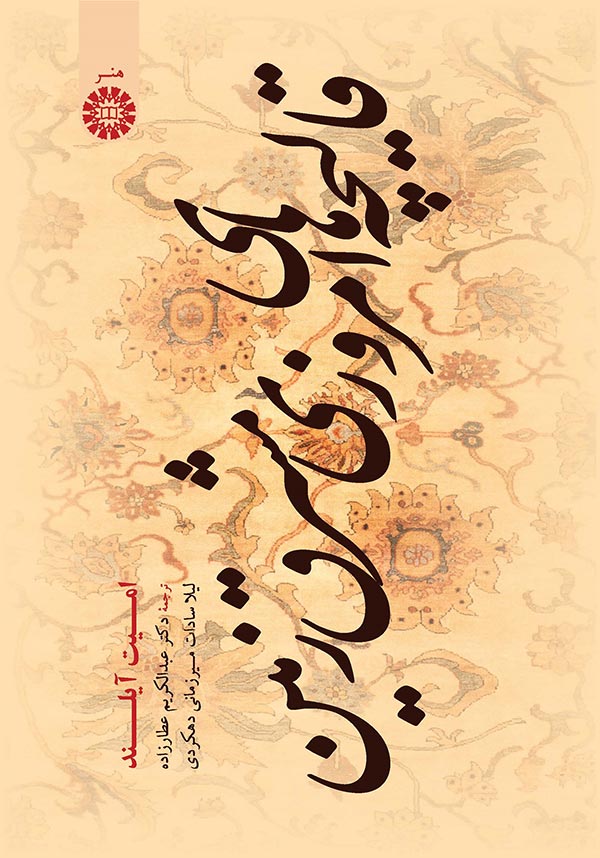 هنر
قالیچه های امروزی مشرق زمین
امیت آیلند
ترجمۀ دکتر عبدالکریم عطارزاده
لیلا سادات میرزمانی دهکردی